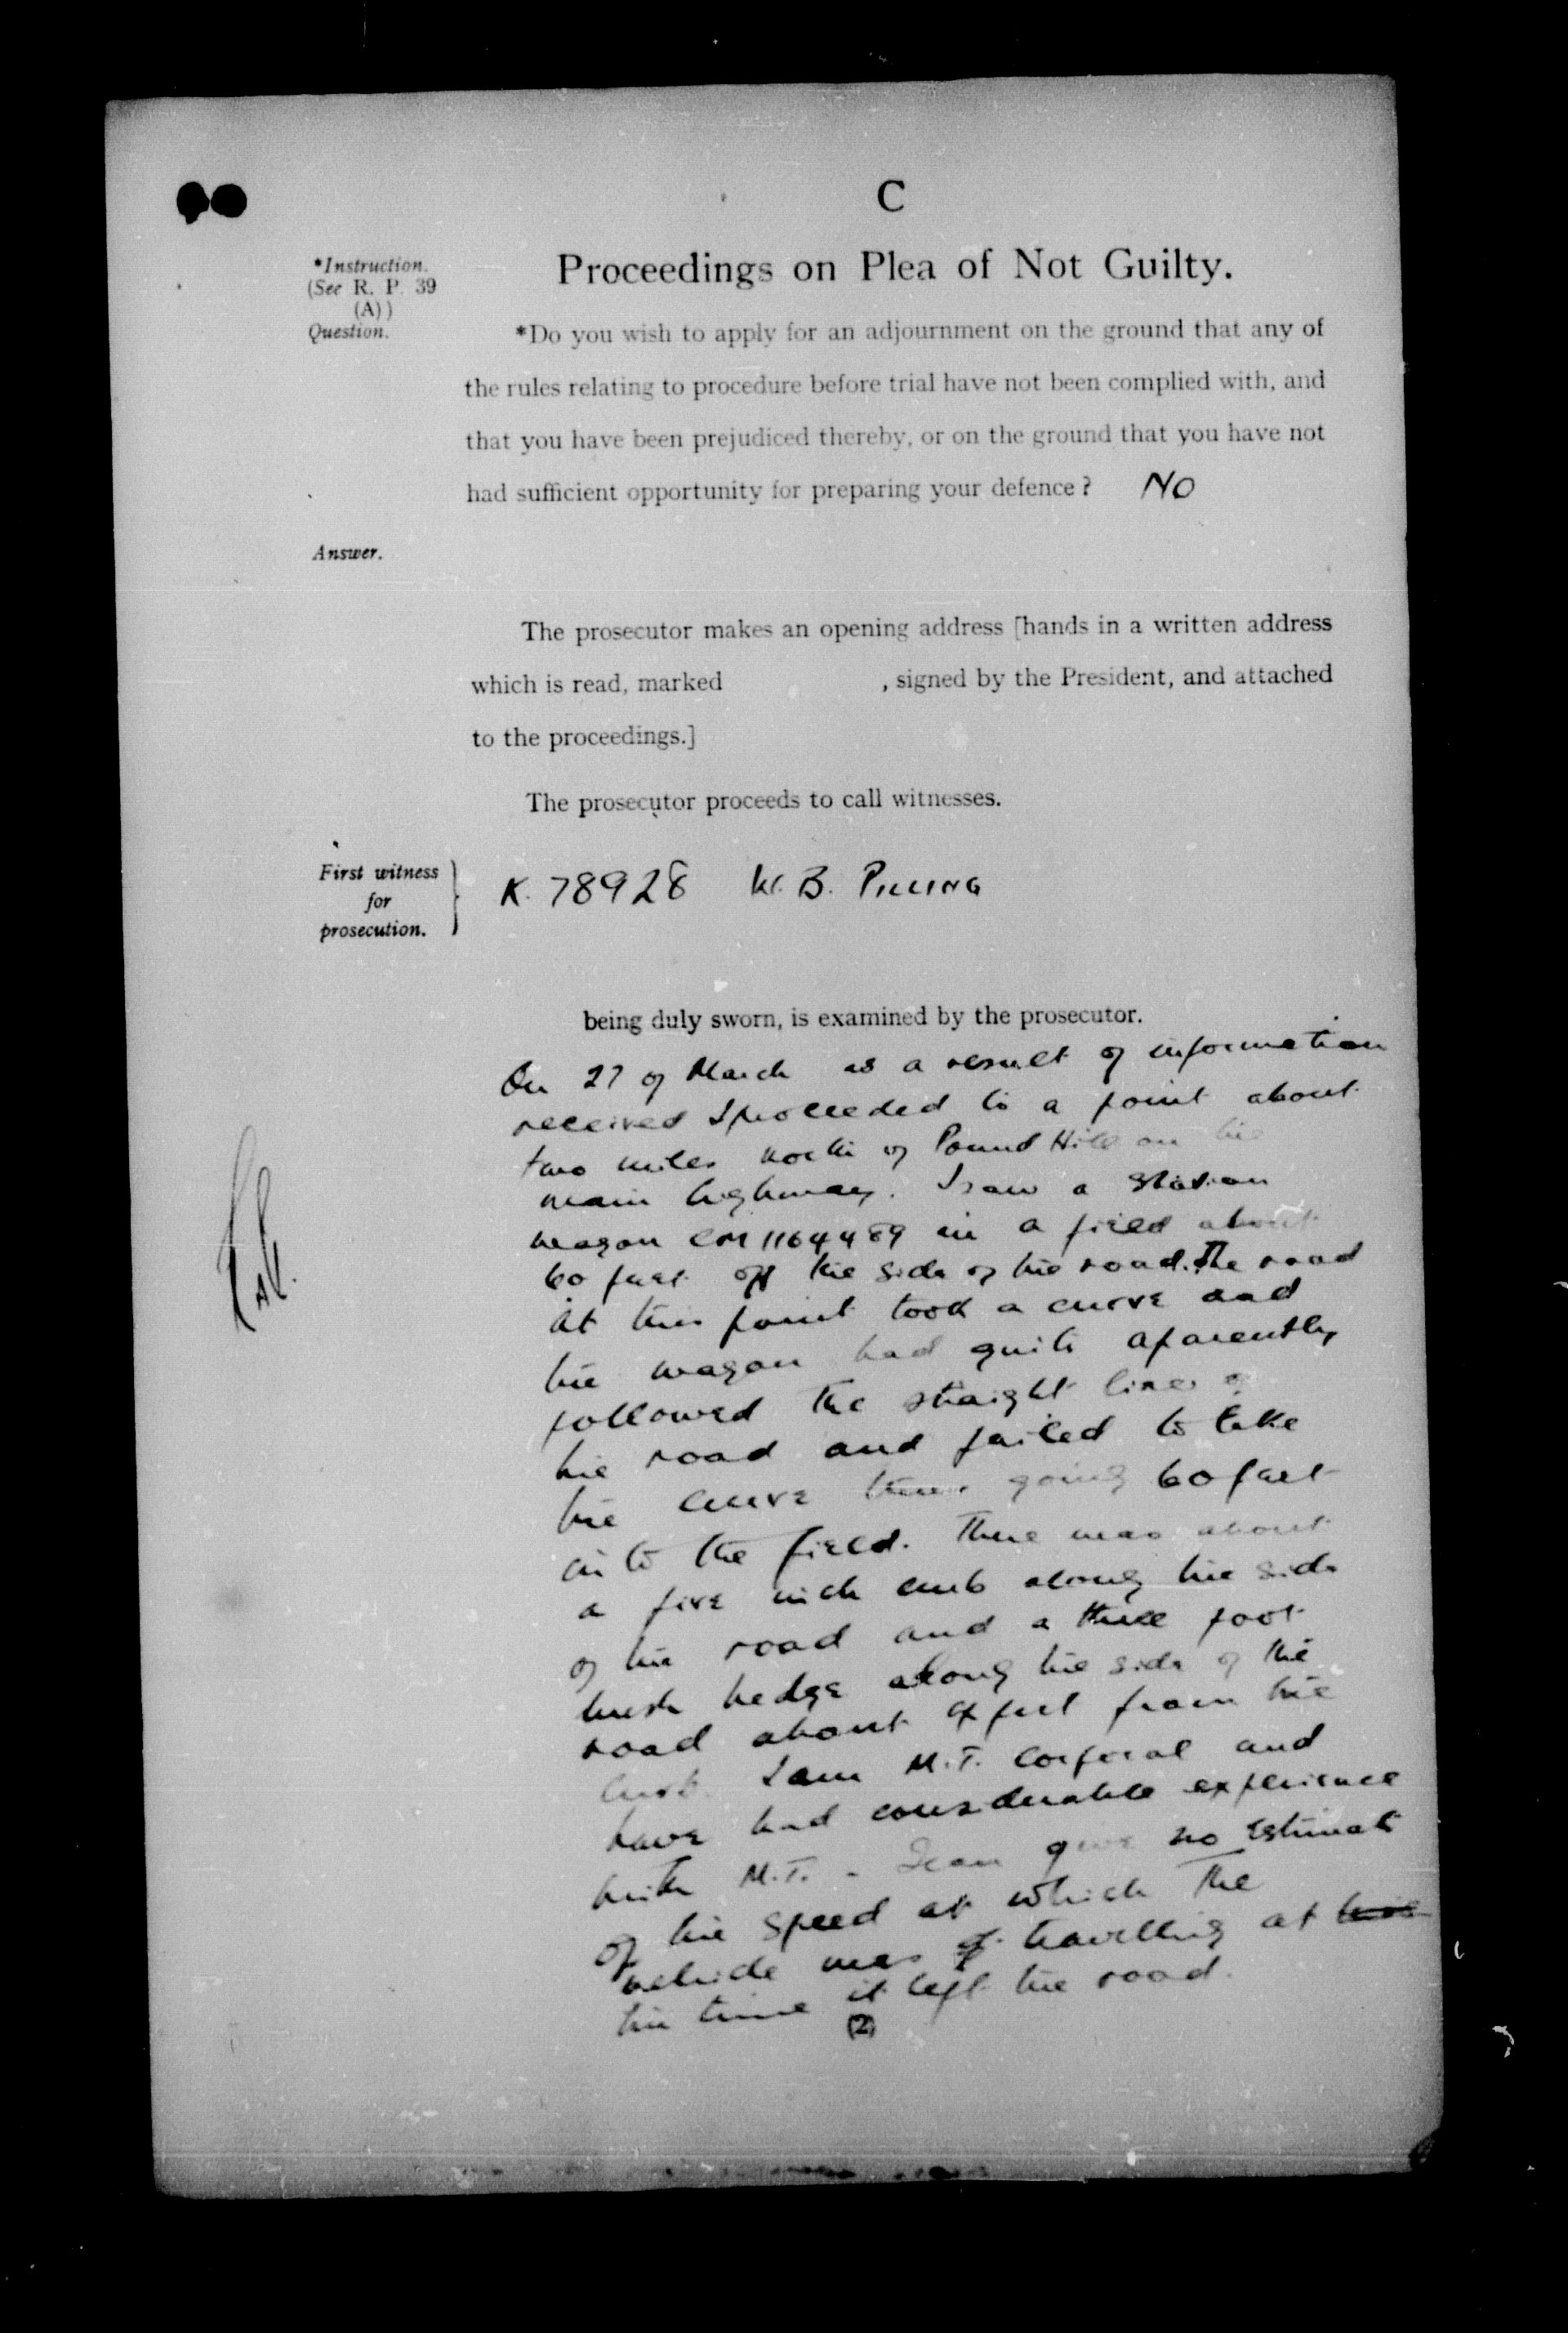 C
Proceedings on Plea of Not Guilty.
*Instruction.
(See R. P. 39
(A))
Question.
*Do you wish to apply for an adjournment on the ground that any of
the rules relating to procedure before trial have not been complied with, and
that you have been prejudiced thereby, or on the ground that you have not
had sufficient opportunity for preparing your defence? NO
Answer.
The prosecutor makes an opening address [hands in a written address
which is read, marked , signed by the President, and attached
to the proceedings.]
The prosecutor proceeds to call witnesses.
First witness
for
prosecution.
K. 78928 W. B. PILLING
being duly sworn, is examined by the prosecutor.
On 27 of March as a result of information
received I proceeded to a point about
two miles north of Pound Hill on the
main highway. I saw a station
wagon CM 1164489 in a field about
60 feet off the side of the road. The road
at this point took a curve and
the wagon had quite aparently
followed the straight line of
the road and failed to take
the curve going 60 feet
in to the field. There was about
a five inch curb along the side
of the road and a three foot
bush hedge along the side of the
road about feet from the
curb. I am M.T. Corporal and
have had considerable experience
with M.T. I can give no estimate
of the speed at which the
vehicle was travelling at
the time it left the road.
(2)